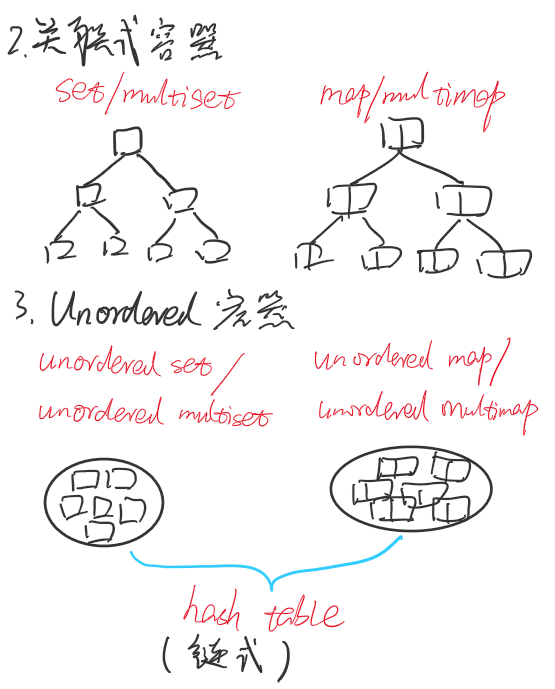 2.关联式容器
set/multiset
map/multimap
3. Unordered 容器
unordered set/
unordered multiset
unordered map/
unordered multimap
hash table
(链式)